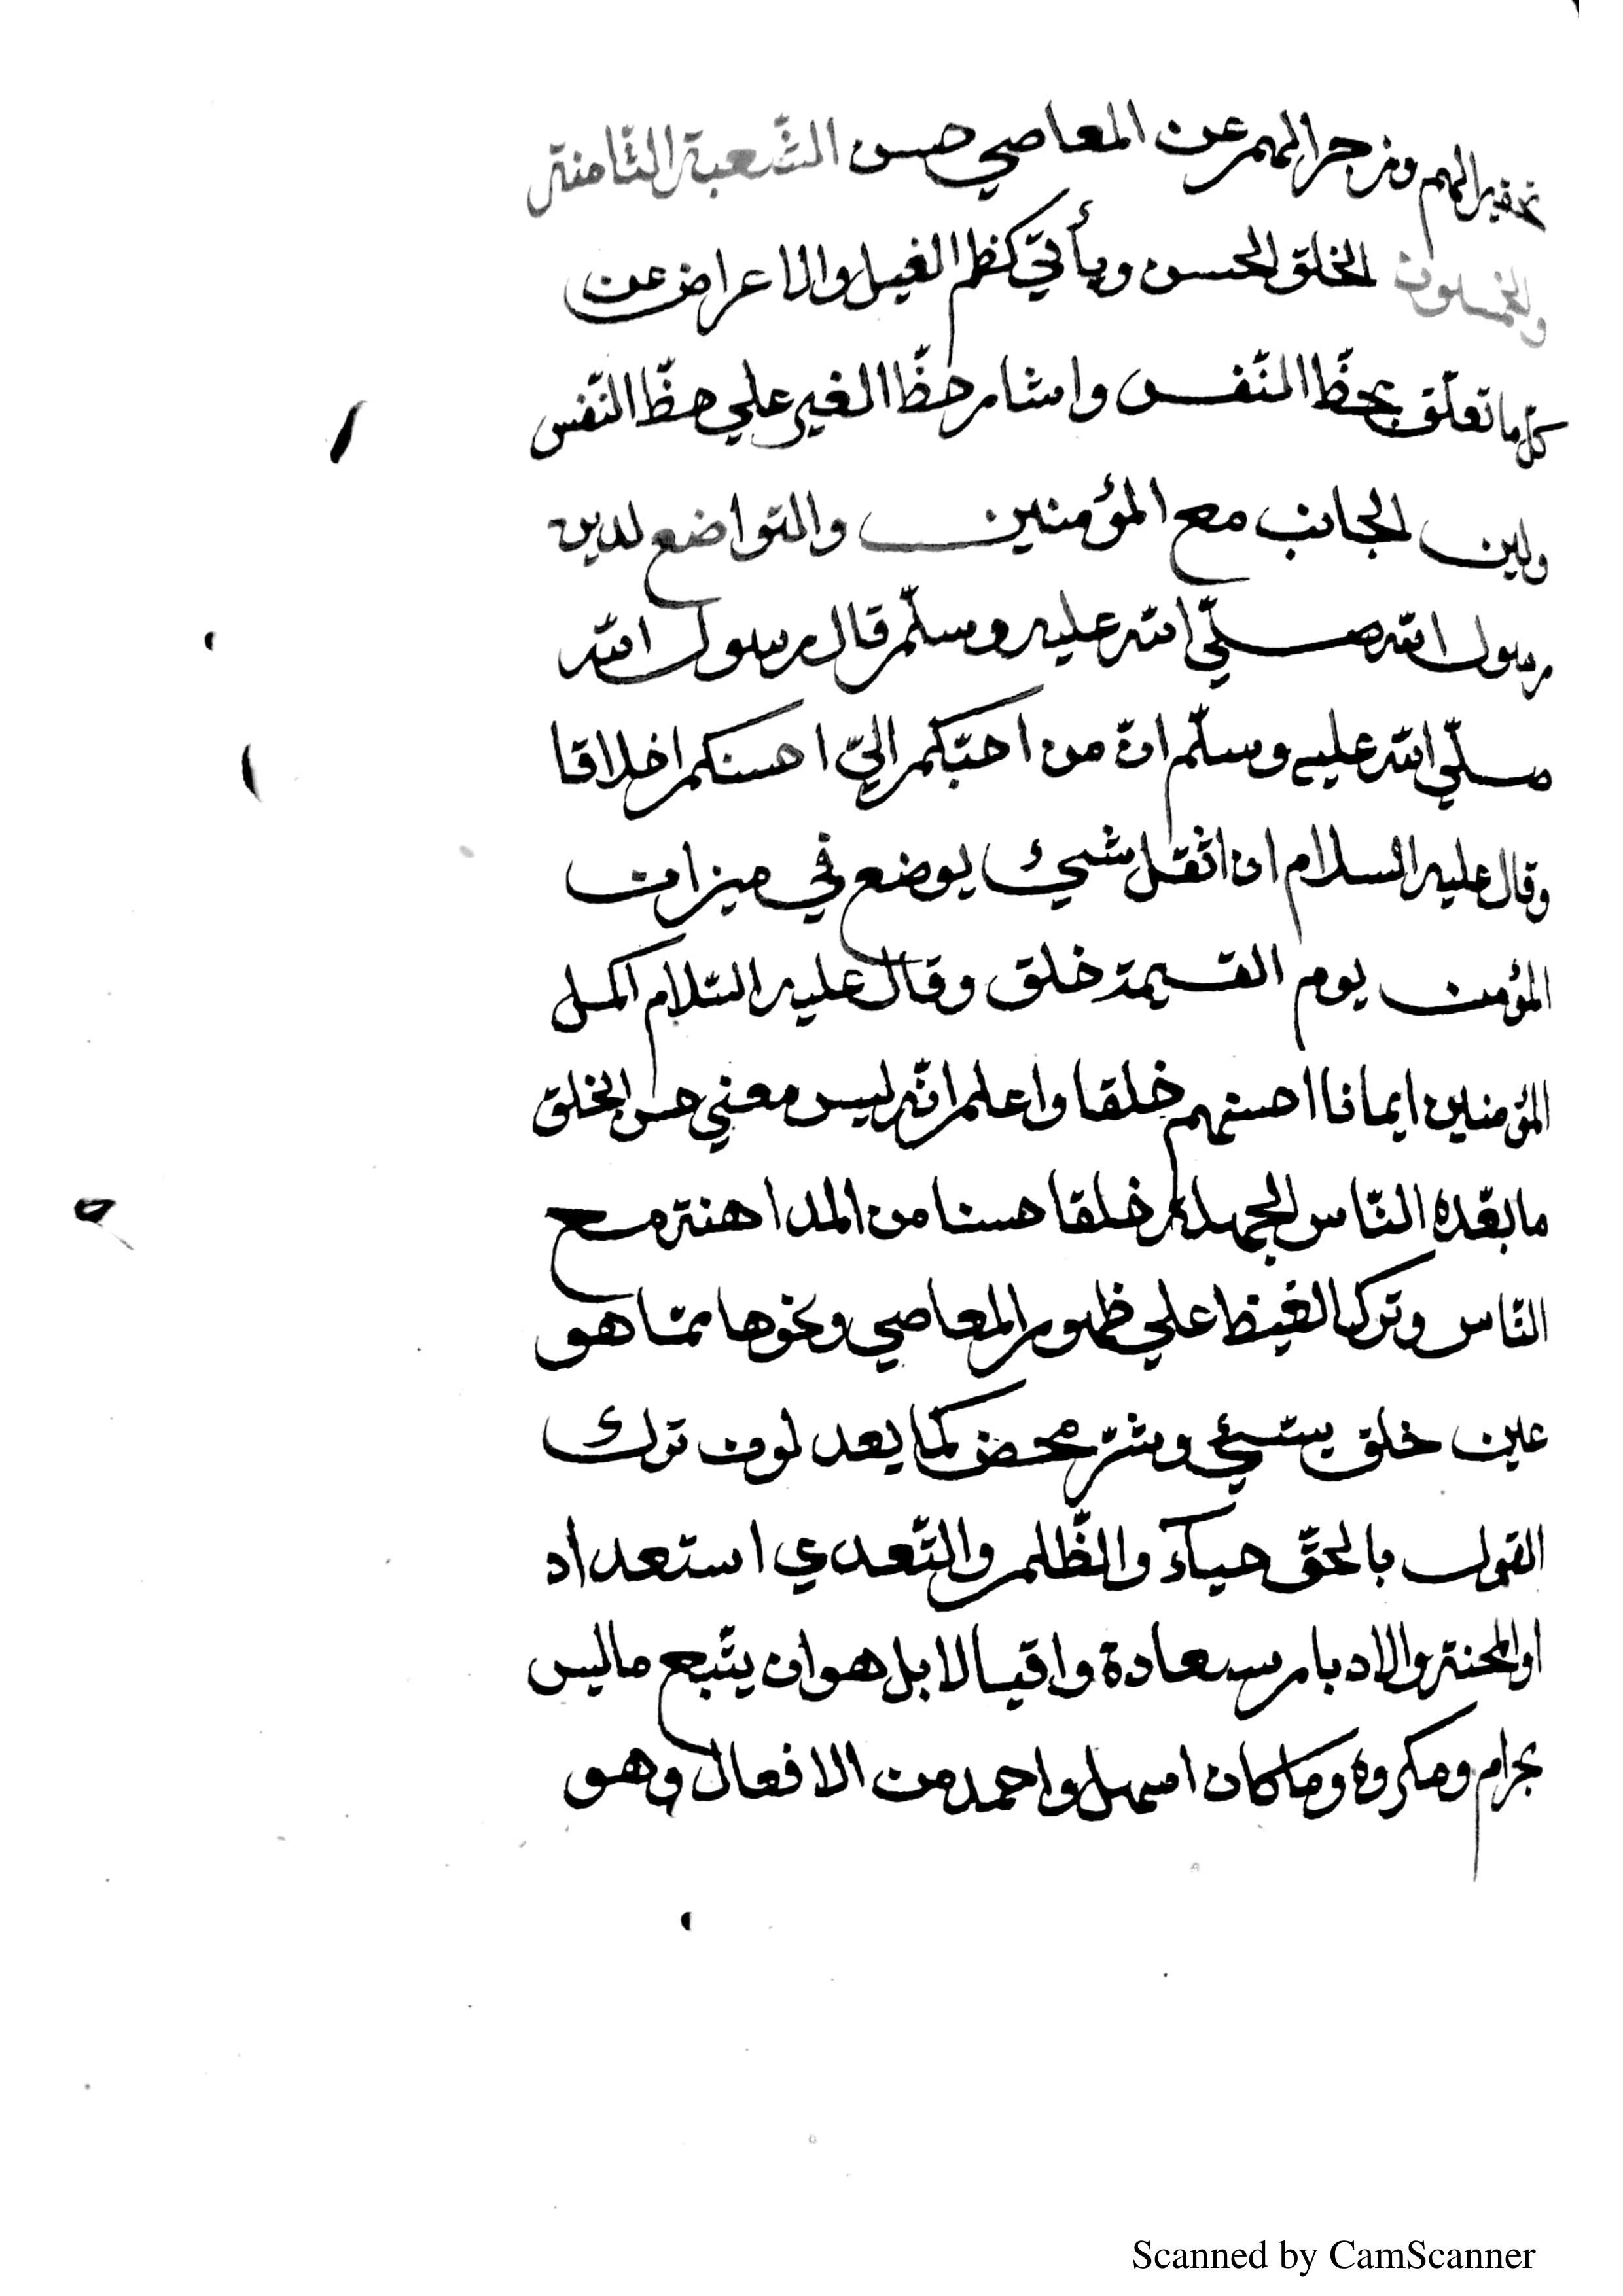 تحقيرا لهم وزجرا لهم عن المعاصي حسن الشّعبة الثّامنة
والخمسون الخلق الحسن ويأتي كظم الغيظ والاعراض عن
كل ما تعلّق بحظّ النّفس وايثار حظّ الغير علي حظّ النّفس
ولين الجانب مع المؤمنين والتواضع لدين
رسول الله صلّي الله عليه وسلّم قال رسول الله
صلّي الله عليه وسلّم انّ من احبّكم اليّ احسنكم اخلاقا
وقال عليه السلام ان اثقل شيئ يوضع في ميزان
المؤمن يوم القيمة خلق وقال عليه السّلام اكمل
المؤمنين ايمانا احسنهم خلقا واعلم انّه ليس معني حسن الخلق
ما يعّده النّاس لجهلهم خلقا حسنا من المداهنة مع
النّاس وترك الغيظ علي ظهور المعاصي ونحوها ممّا هو
عين خلق سيّئ وشرّ محض كما يعدلون ترك
القول بالحقّ حياء والظّلم والتّعدي استعداد
او المحنة والادبار سعادة واقبالا بل هو ان يتّبع ما ليس
بحرام ومكروه وما كان اسهل واحمد من الافعال وهو
Scanned by CamScanner